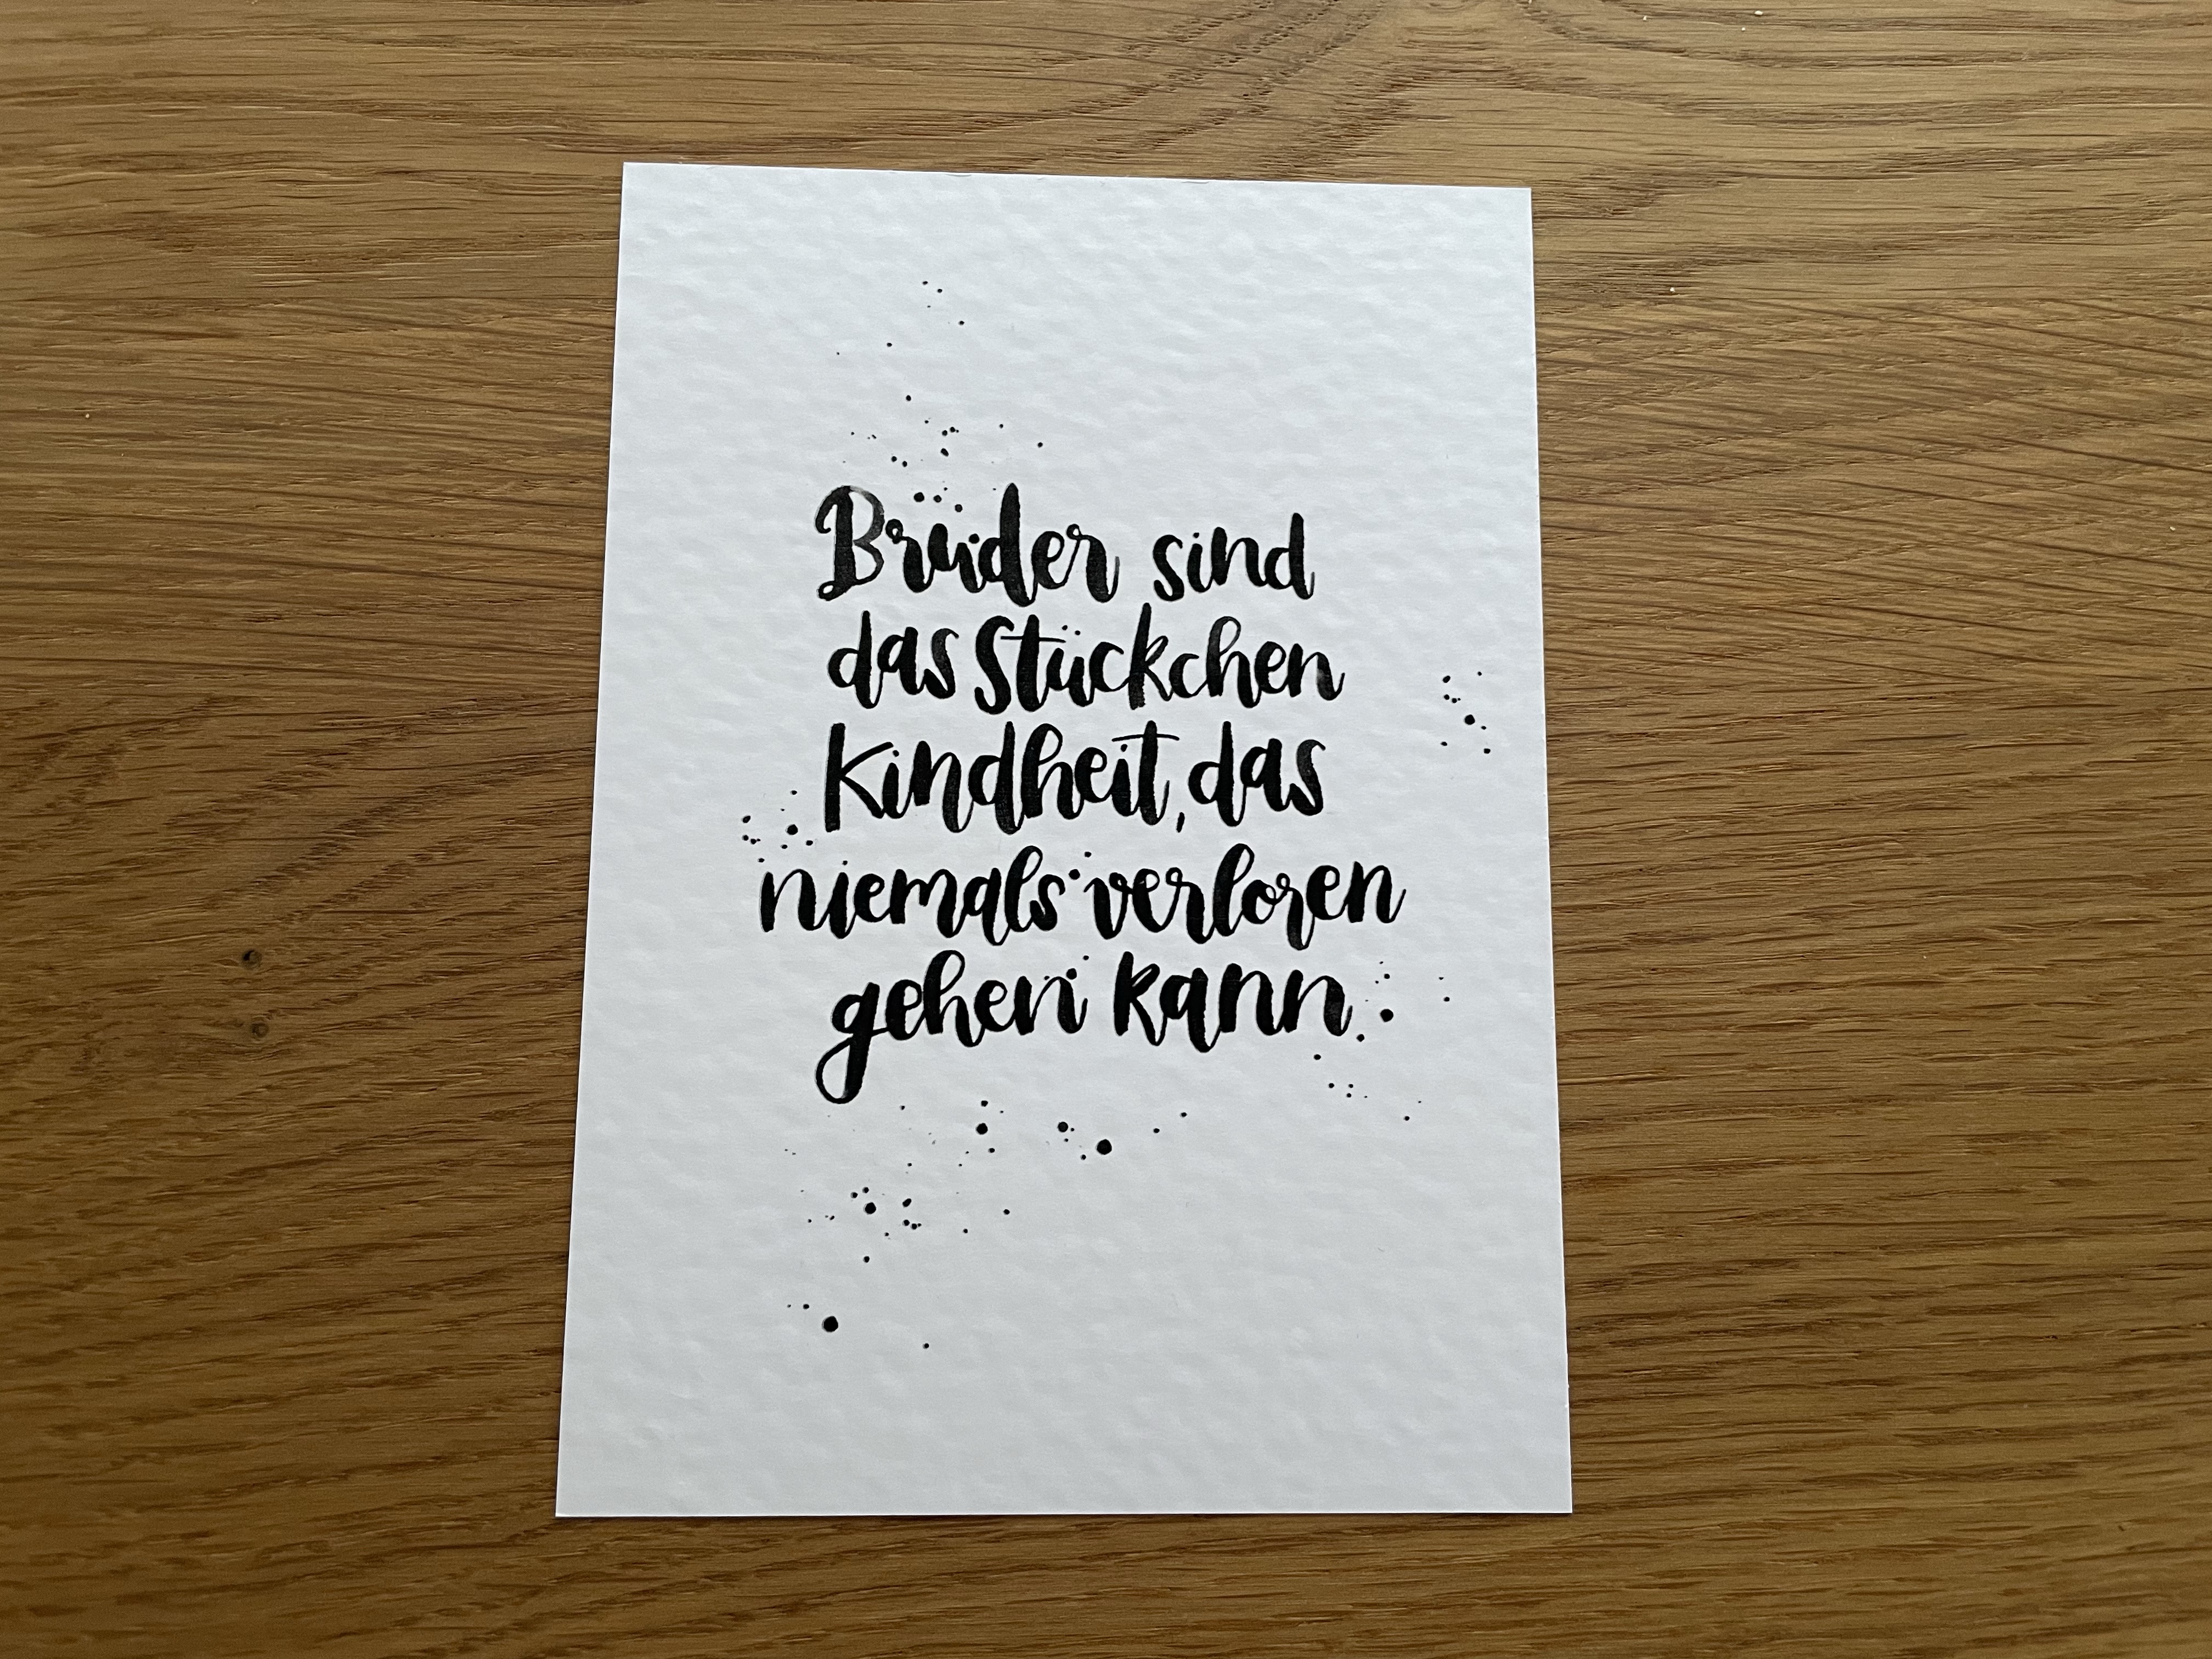 Brüder sind
das Stückchen
Kindheit, das
niemals verloren
gehen kann.